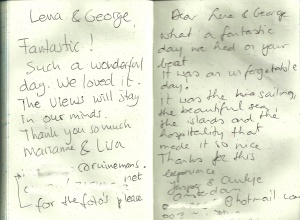 Lena & George
Fantastic!
Such a wonderful
day. We loved it.
The views will stay
in our minds.
Thank you so much
Marianne & Lisa
for the foto's please
Dear Lena & George
what a fantastic
day we had on your
boat
It was an unforgetable
day.
It was the nice sailing,
the beautiful sea,
the islands and the
hospitality that
made it so nice
Thanks for this
experience
Jasper &
Amsterdam
@hotmail.co